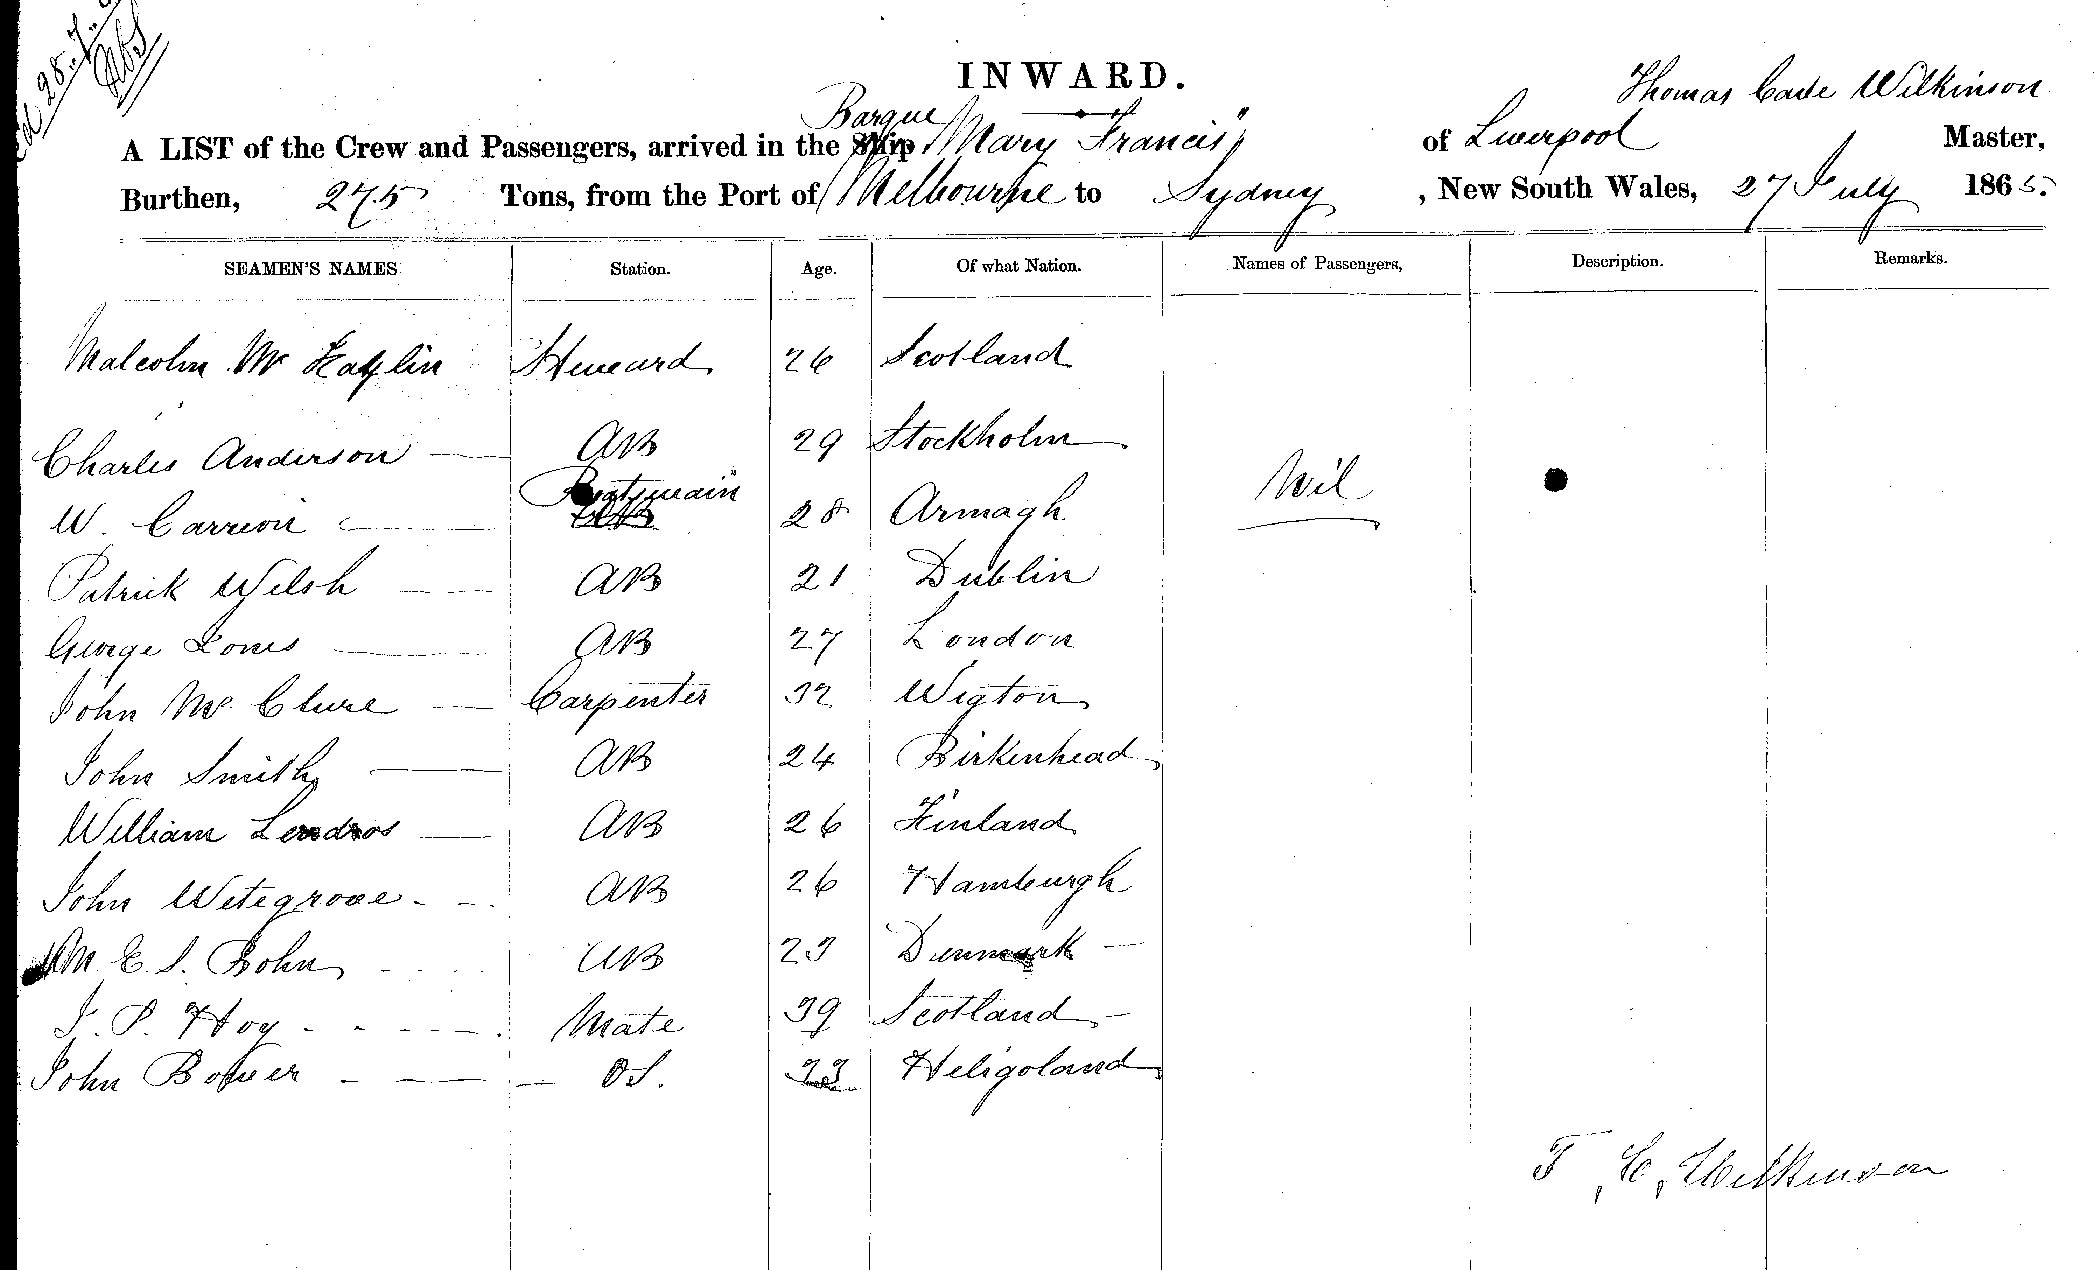 28.7.
INWARD.
Thomas Cade Wilkinson
Barque
A LIST of the Crew and Passengers, arrived in the Ship "Mary Francis" of Liverpool Master,
Burthen, 275 Tons, from the Port of Melbourne to Sydney , New South Wales, 27 July 1865.
SEAMEN'S NAMES Station. Age. Of what Nation. Names of Passengers, Description. Remarks.
Malcolm Mc Steward 26 Scotland
Charles Anderson AB 29 Stockholm
W. Carrion Boatswain 28 Armagh Nil
Patrick Welsh AB 21 Dublin
George Jones AB 27 London
John Mc Clure Carpenter 32 Wigton
John Smith AB 24 Birkenhead
William Lendros AB 26 Finland
John Wetegrove AB 26 Hamburgh
M E. S. Bohn AB 23 Denmark
J. P. Hoy Mate 39 Scotland
John Bower OS. 23 Heligoland
T C, Wilkinson